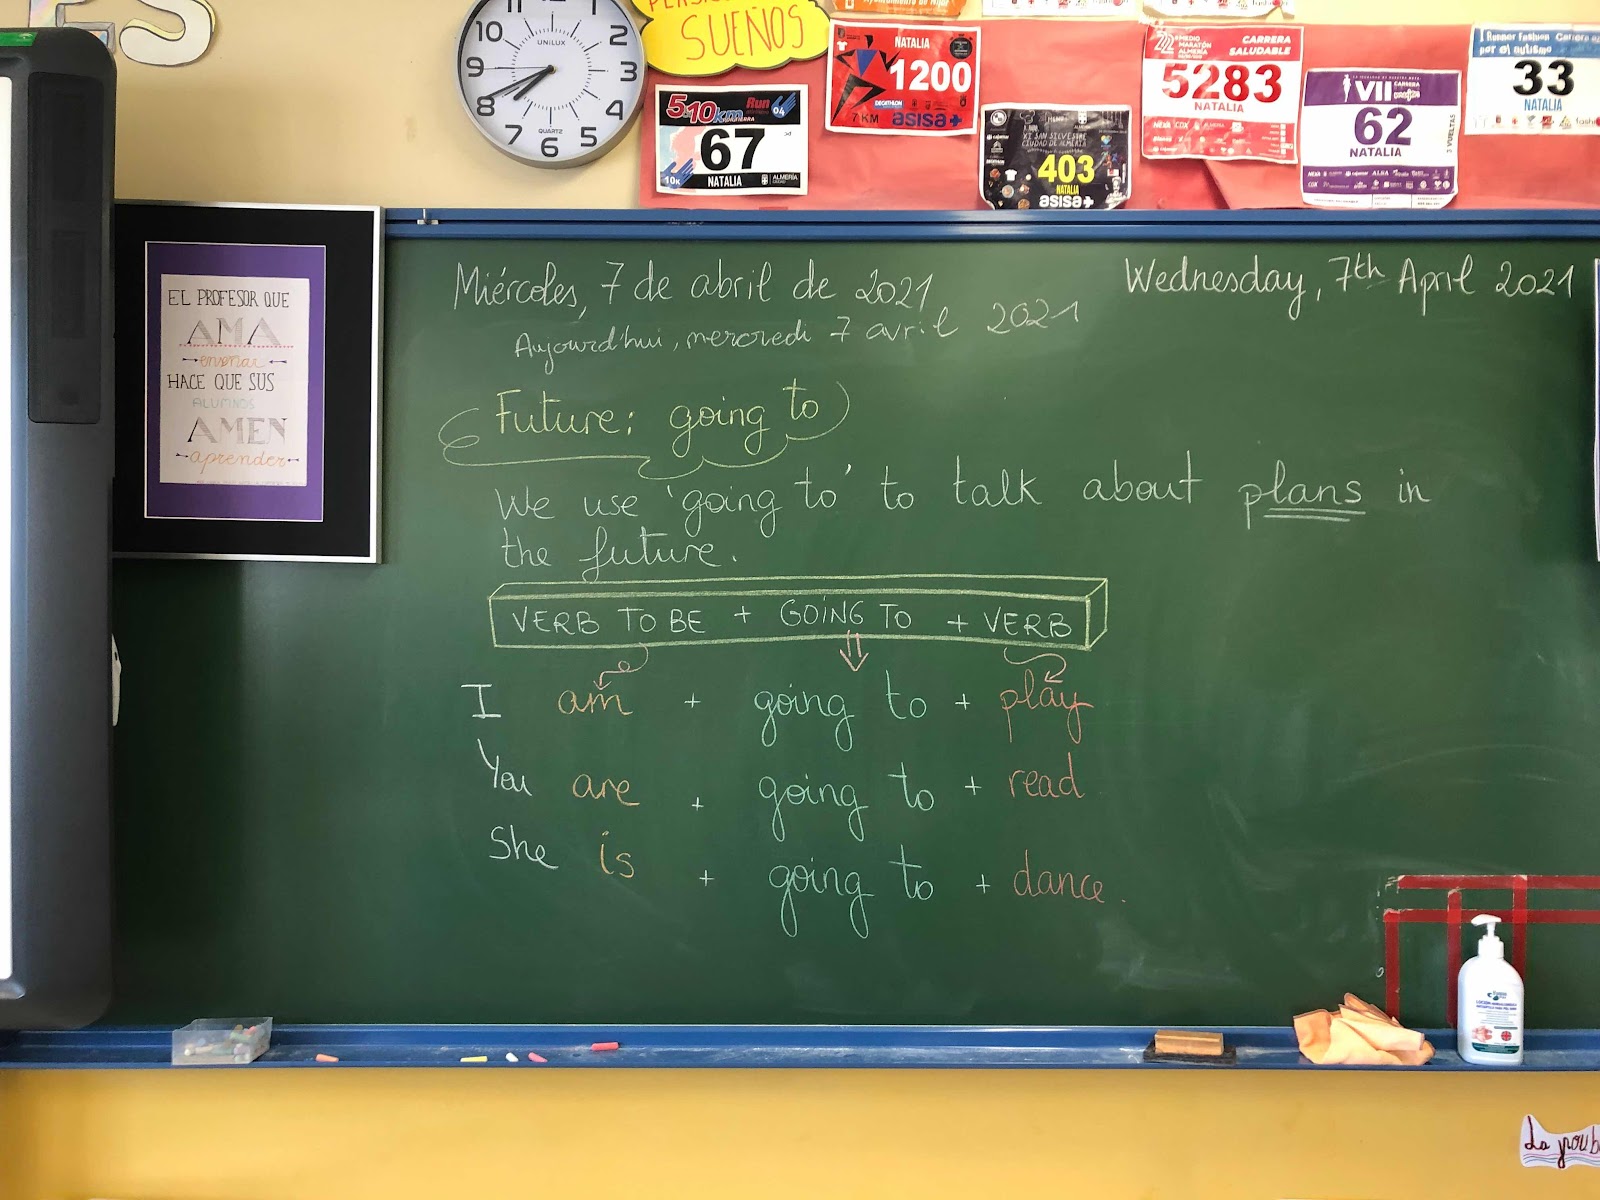 ES
PERSI
SUEÑOS
10
2
9
3
8
4
7
5
6
UNILUX
QUARTZ
5 10 km Run
04
67
10K
NATALIA
ALMERÍA
NATALIA
1200
DECATHLON
7 KM
asisa+
XI SAN SILVESTRE
CIUDAD DE ALMERÍA
403
NATALIA
asisa+
22 MEDIO MARATÓN ALMERÍA
CARRERA SALUDABLE
5283
NATALIA
VII
CARRERA
62
NATALIA
3 VUELTAS
I Runner Fashion Carrera
por el autismo
33
NATALIA
EL PROFESOR QUE
AMA
enseñar
HACE QUE SUS
ALUMNOS
AMEN
aprender
Miércoles, 7 de abril de 2021
Wednesday, 7th April 2021
Aujourd'hui, mercredi 7 avril 2021
Future: going to
We use 'going to' to talk about plans in
the future.
VERB TO BE + GOING TO + VERB
I am + going to + play
You are + going to + read
She is + going to + dance.